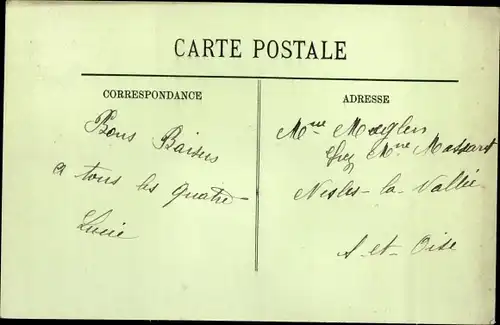 CARTE POSTALE
CORRESPONDANCE
Bons Baisers
a tous les quatre
Lucie
ADRESSE
Mme
chez Mme Massard
Nesles-la-Vallée
S-et-Oise